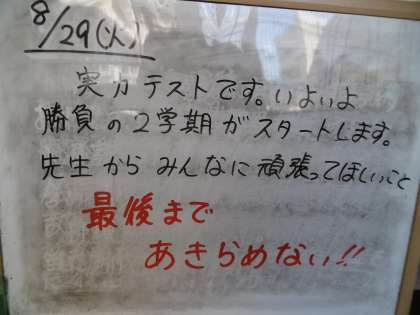 8/29(火)
実力テストです。いよいよ
勝負の2学期がスタートします。
先生からみんなに頑張ってほしいこと
最後まで
あきらめない!!